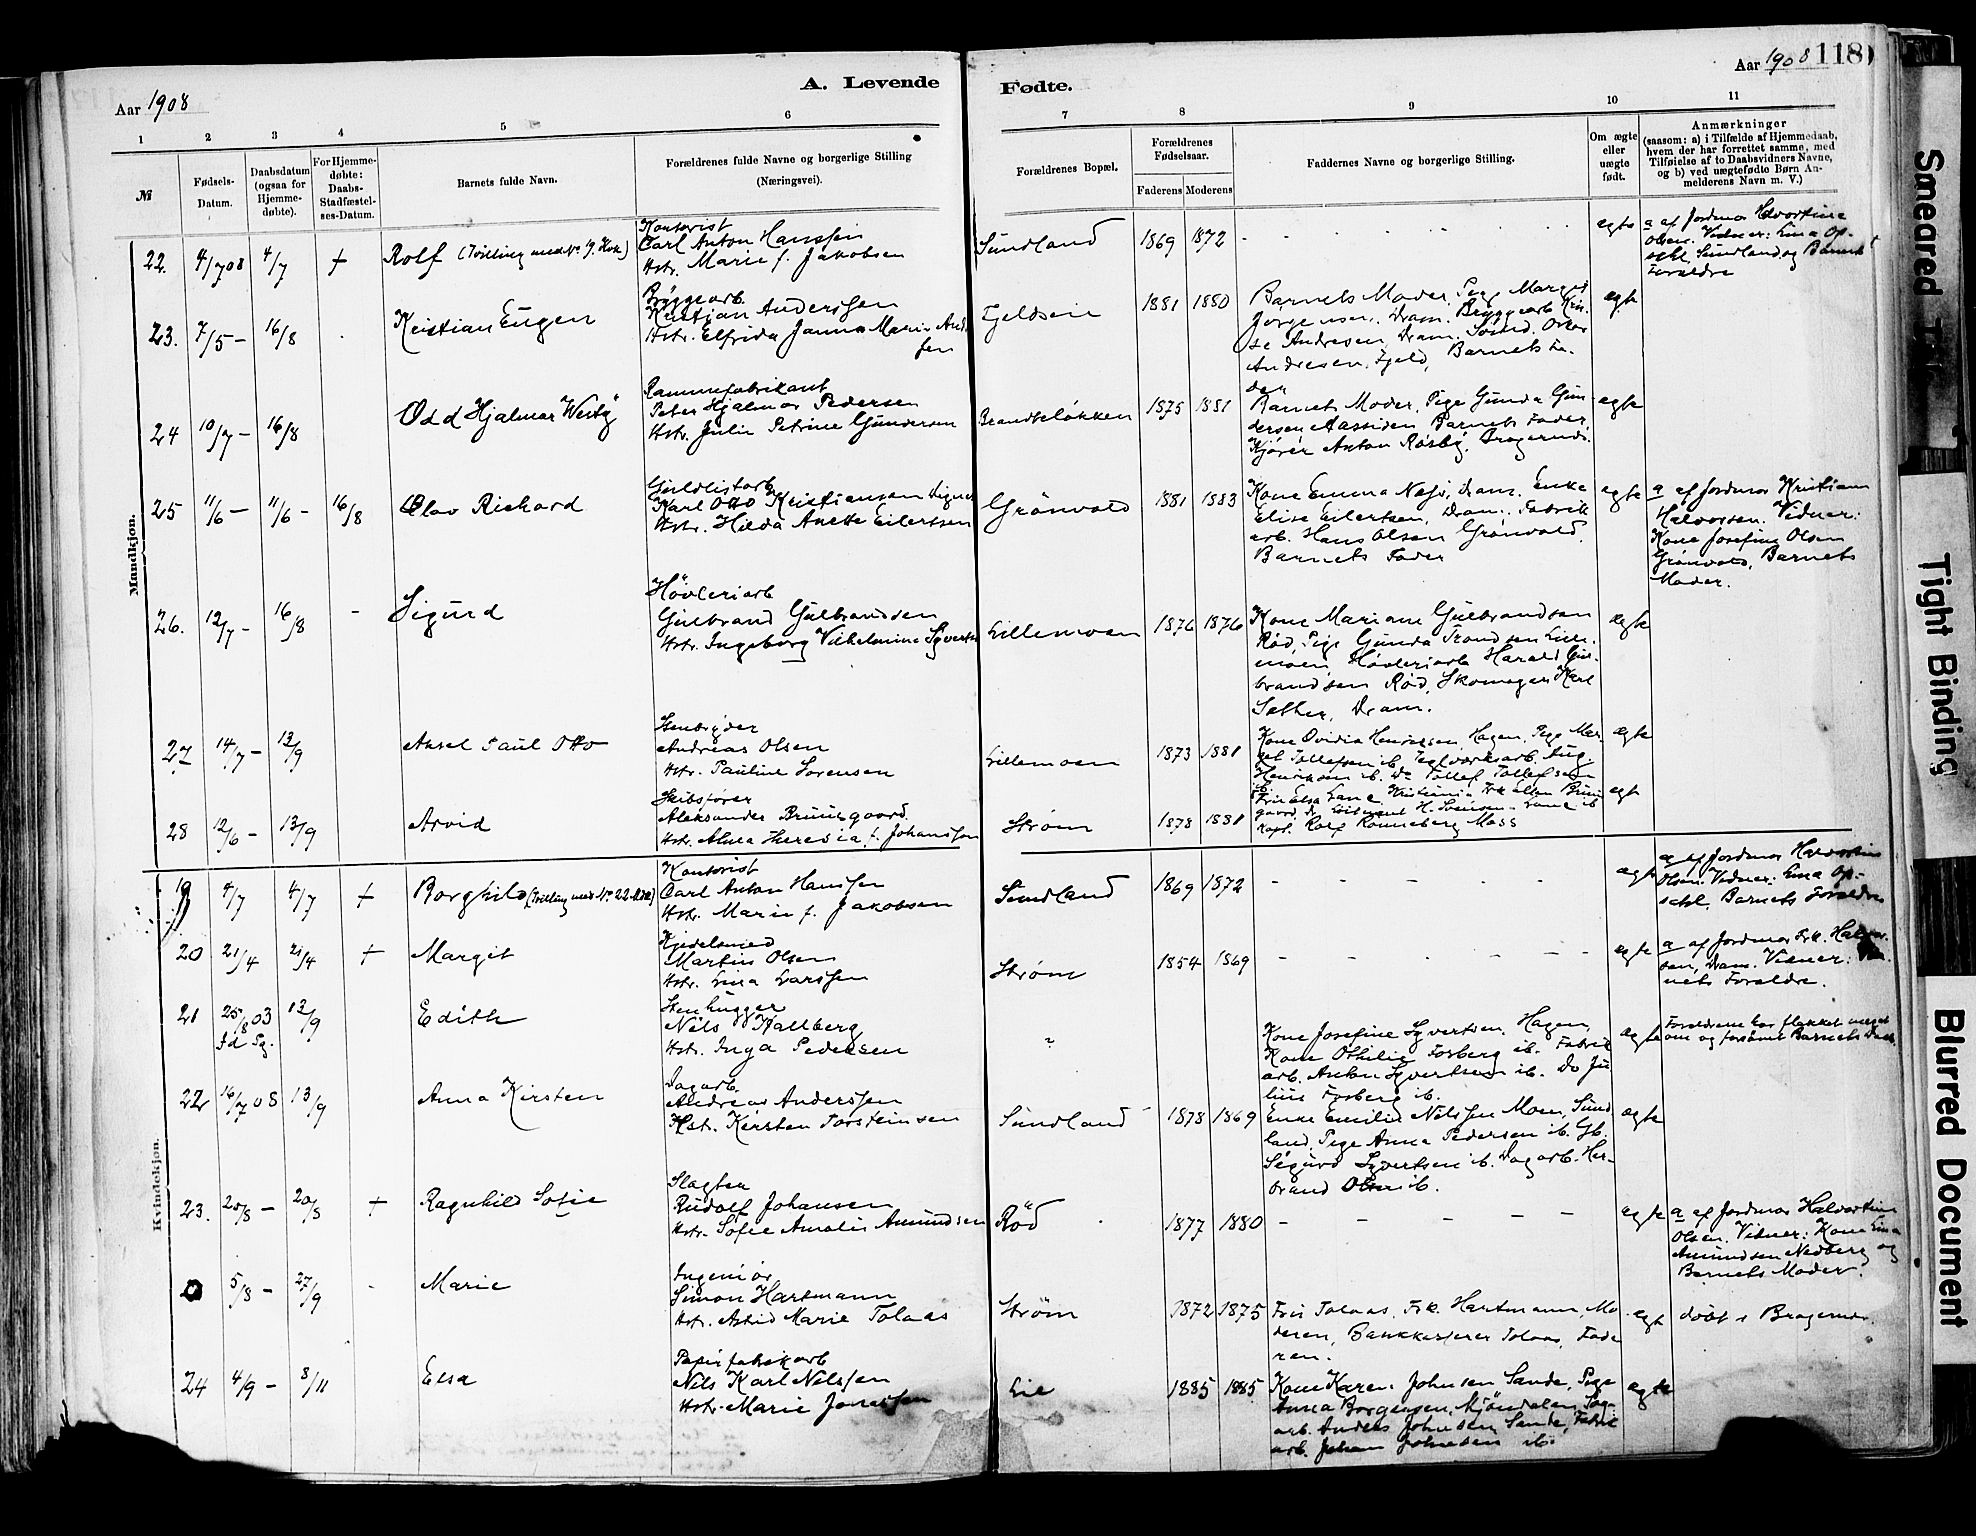 Aar 1908
A. Levende
Fødte.
Aar 1908 118
1 2 3 4 5 6 7 8 9 10 11
№
Fødsels-
Datum.
Daabsdatum
(ogsaa for
Hjemme-
døbte).
For Hjemme-
døbte:
Daabs-
Stadfæstel-
ses-Datum.
Barnets fulde Navn.
Forældrenes fulde Navne og borgerlige Stilling
(Næringsvei).
Forældrenes Bopæl.
Forældrenes
Fødselsaar.
Faderens Moderens
Faddernes Navne og borgerlige Stilling.
Om ægte
eller
uægte
født.
Anmærkninger
(saasom: a) i Tilfælde af Hjemmedaab,
hvem der har forrettet samme, med
Tilføielse af to Daabsvidners Navne,
og b) ved uægtefødte Børn An-
melderens Navn m. V.)
Mandkjøn.
22. 4/7 08 4/7 + Rolf (Tvilling med No 19. Kvk)
Kontorist
Carl Anton Hanssen
Hstr. Marie f. Jakobsen
Sundland 1869 1872 egte
a af Jordmor Halvorline
Olsen. Vidner: Lina Op-
sahl, Sundland og Barnets
Forældre
23. 7/5 - 16/8 Kristian Eugen
Bryggearb.
Kristian Anderssen
Hstr. Elfrida Janna Marie And
sen
Fjeldsein 1881 1880
Barnets Moder, Pige Margit
Jørgensen, Dram. Bryggearb Kri-
Andresen, Dram. Oskar
Andresen, Fjeld, Barnets Fa-
der
egte
24 10/7 - 16/8 Odd Hjalmar "Westby"
Rammefabrikant
Peter Hjalmar Pedersen
Hstr. Julie Petrine Gundersen
Brandtsløkken 1875 1881
Barnets Moder, Pige Gunda Gun
dersen Aassiden Barnets Fader,
Kjører Anton Røsby, Bragernes.
egte
25 11/6 - 11/6 - 16/8 Olav Richard
Guldlistarb
Karl Otto Kristiansen Signes
Hstr. Hilda Anette Eilertsen
Grønvold 1881 1883
Kone Emma Næss, Dram. Enke
Elise Eilertsen, Dram., Fabrik
arb. Hans Olsen Grønvold,
Barnets Fader
egte
a af Jordmor Kristiane
Halvorsen. Vidner:
Kone Josefine Olsen
Grønvold, Barnets
Moder.
26. 12/7 - 16/8 - Sigurd
Høvleriarb
Gulbrand Gulbrandsen
Hstr. Ingeborg Vilhelmine Syverts
Lillemoen 1876 1876
Kone Mariane Gulbrandsen
Rød, Pige Gunda Trondsen Lille-
moen, Høvleriarb Harald Gul-
brandsen Rød, Skomager Karl
Sæther, Dram.
egte
27 14/7 - 13/9 Aksel Paul Otto
Stenbryder
Andreas Olsen
Hstr. Pauline Sørensen
Lillemoen 1873 1881
Kone Ovidia Henriksen, Hagen, Pige Mar-
get Tollefsen ib. Teglværksarb. Aug.
Henriksen ib. Do Tollef Tollefsen
ib.
egte
28 12/6 - 13/9 Arvid
Skibsfører
Aleksander Bruusgaard.
Hstr. Alma Theresia f. Johanssen
Strøm 1878 1881
Frk Elsa Lane, Kristiania Frk Ellen Bruus
gaard, Dr. H. Svensen - Lane ib
Kapt. Rolf Rønneberg Moss
egte
Kvindekjøn.
19 4/7 4/7 + Borghild (Tvilling med No 22 Mdk)
Kontorist
Carl Anton Hanssen
Hstr. Marie f. Jakobsen
Sundland 1869 1872 - - - - - egte
a af Jordmor Halvorline
Olsen. Vidner: Lina Op-
sahl, Barnets Forældre
20 21/4 21/4 + Margit
Kjedelsmed
Martin Olsen
Hstr. Lina Larssen
Strøm 1854 1869 - - - - - - egte
a af Jordmor Frk. Halvor-
sen, Dram. Vidner: Bar-
nets Forældre.
21 25/8 03 13/9 Edith
Stenhugger
Nils Hallberg
Hstr. Inga Pedersen
Kone Josefine Syvertsen, Hagen,
Kone Othilie Forberg ib. Fabrik
arb. Anton Syvertsen ib. Do Ju
lius Forberg ib.
egte
Forældrene har flakket meget
om og forsømt Barnets Daab
22 16/7 08 13/9 Anna Kirsten
Dagarb.
Andreas Anderssen
Hst. Kirsten Torsteinsen
Sundland 1878 1869
Enke Emilie Nilssen Moen, Sund
land, Pige Anna Pedersen ib. Gb.
Sigurd Syvertsen ib. Dagarb. Her-
brand Olsen ib.
egte
23. 20/8 - 20/8 + Ragnhild Sofie
Slagter
Rudolf Johansen
Hstr. Sofie Amalie Amundsen
Rød 1877 1880 - - - - - egte
a af Jordmor Halvorline
Olsen. Vidner: Kone Lina
Amundsen Nedberg og
Barnets Moder.
0 5/8 - 27/9 - Marie
Ingeniør
Simon Hartmann
Hstr. Astrid Marie Tolaas
Strøm 1872 1875
Fru Tolaas, Frk. Hartmann, Mo
deren, Bankkasserer Tolaas, Fade
ren.
egte døbt i Bragernes.
24 4/9 - 8/11 Elsa
Papirfabrikarb
Nils Karl Nilssen
Hstr. Marie Jonassen
Lie 1885 1885
Kone Karen Johnsen Sande, Pige
Anna Borgersen, Mjøndalen, Sag-
arb. Anders Johnsen, Sande, Fabrik
arb. Johan Johnsen ib.
egte
Smeared
Tight Binding
Blurred Document